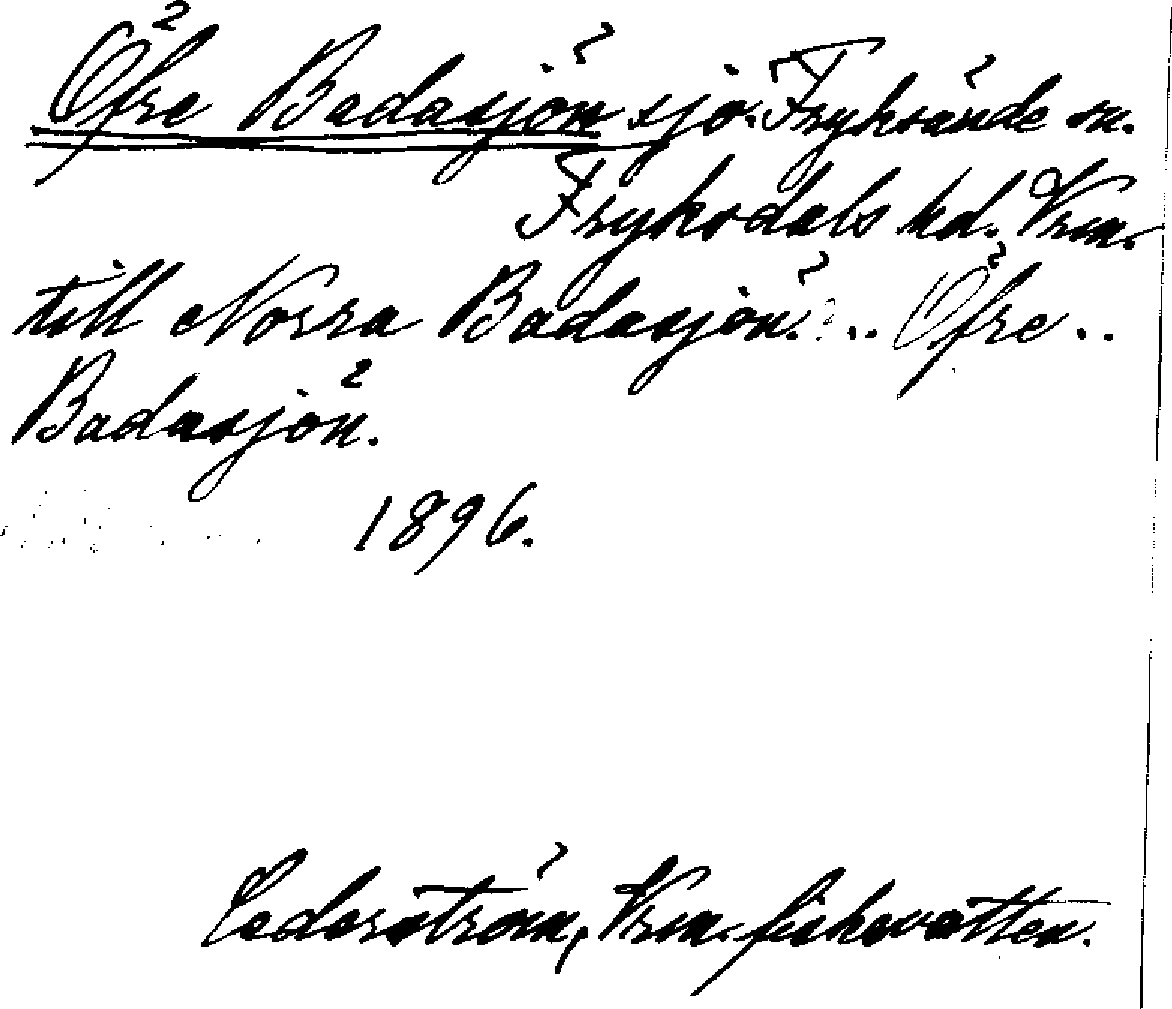 Öfre Badasjön sjö. Fryksände sn.
Fryksdals hd. Vrm.
till Norra Badasjön ... Öfre ..
Badasjön.
1896.
Cederström, Vrm. fiskevatten.